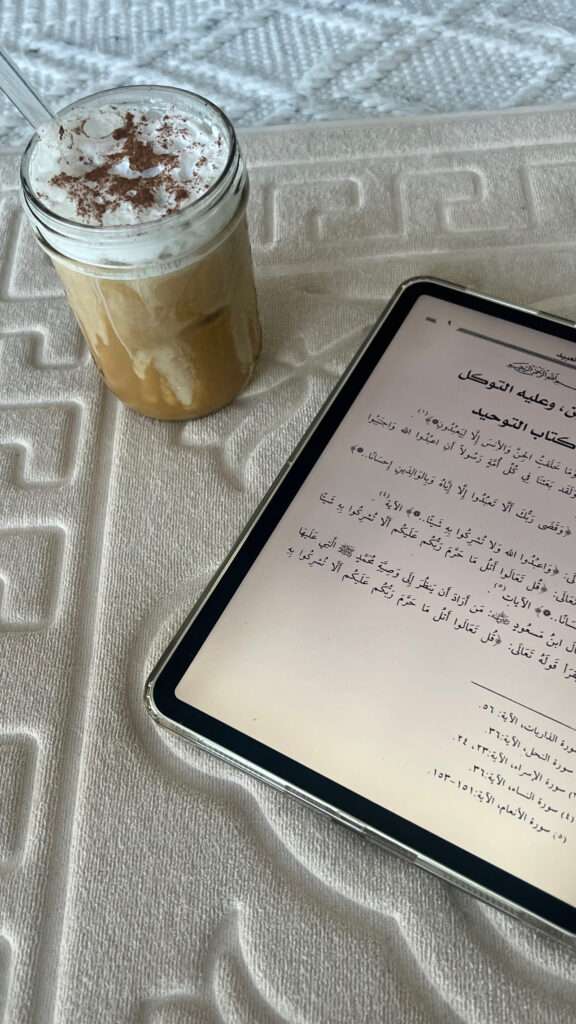 ٩
بسم الله الرحمن الرحيم
وعليه التوكل
كتاب التوحيد
خَلَقْتُ الْجِنَّ وَالْإِنسَ إِلَّا لِيَعْبُدُونِ﴾(١)
بَعَثْنَا فِي كُلِّ أُمَّةٍ رَسُولاً أَنِ اعْبُدُوا اللهَ وَاجْتَنِبُوا
﴿وَقَضَى رَبُّكَ أَلَّا تَعْبُدُوا إِلَّا إِيَّاهُ وَبِالْوَالِدَيْنِ إِحْسَانًا..﴾
﴿وَاعْبُدُوا اللهَ وَلَا تُشْرِكُوا بِهِ شَيْئًا..﴾ الآية(٤).
﴿قُلْ تَعَالَوْا أَتْلُ مَا حَرَّمَ رَبُّكُمْ عَلَيْكُمْ أَلَّا تُشْرِكُوا بِهِ شَيْئًا
..﴾ الآيات(٥).
ابْنُ مَسْعُودٍ ﵁: مَنْ أَرَادَ أَنْ يَنْظُرَ إِلَى وَصِيَّةِ مُحَمَّدٍ ﷺ الَّتِي عَلَيْهَا
قَوْلَهُ تَعَالَى: ﴿قُلْ تَعَالَوْا أَتْلُ مَا حَرَّمَ رَبُّكُمْ عَلَيْكُمْ أَلَّا تُشْرِكُوا بِهِ
سورة الذاريات، الآية: ٥٦.
سورة النحل، الآية: ٣٦.
سورة الإسراء، الآية: ٢٣، ٢٤.
(٤) سورة النساء، الآية: ٣٦.
(٥) سورة الأنعام، الآية: ١٥١-١٥٣.